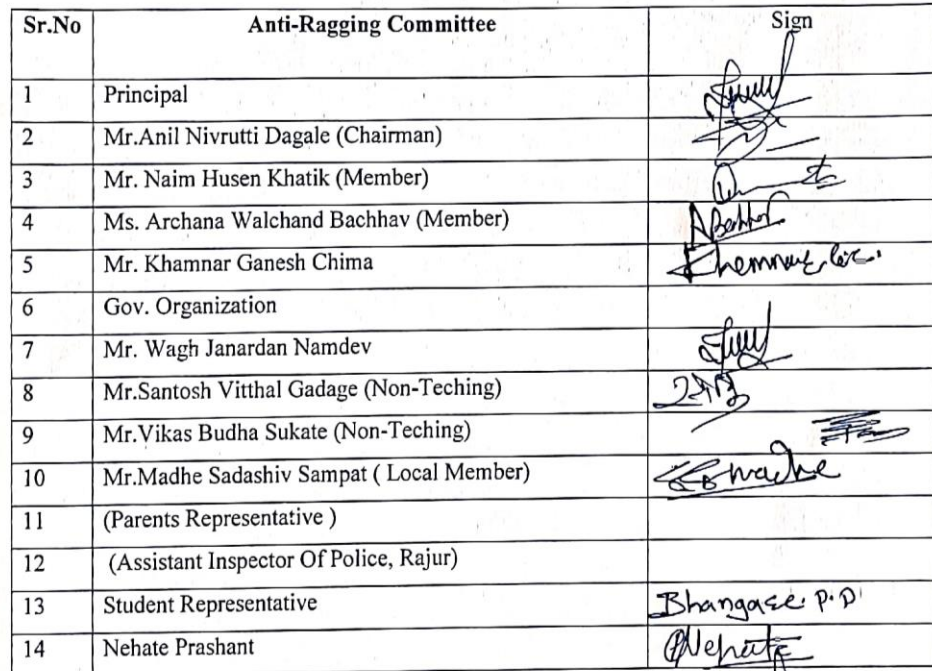 Sr.No Anti-Ragging Committee Sign
1 Principal
2 Mr.Anil Nivrutti Dagale (Chairman)
3 Mr. Naim Husen Khatik (Member)
4 Ms. Archana Walchand Bachhav (Member)
5 Mr. Khamnar Ganesh Chima
6 Gov. Organization
7 Mr. Wagh Janardan Namdev
8 Mr.Santosh Vitthal Gadage (Non-Teching)
9 Mr.Vikas Budha Sukate (Non-Teching)
10 Mr.Madhe Sadashiv Sampat ( Local Member)
11 (Parents Representative )
12 (Assistant Inspector Of Police, Rajur)
13 Student Representative Bhangare P.D
14 Nehate Prashant PNehate